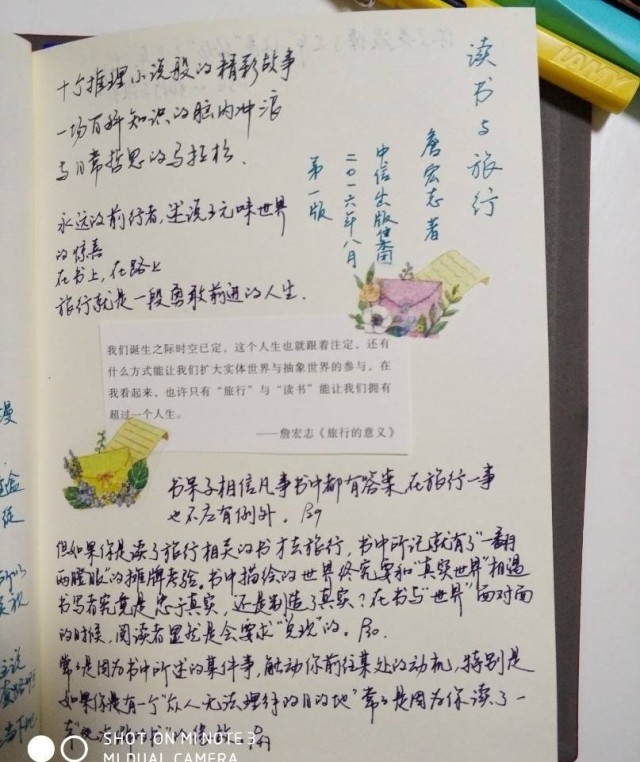 读书与旅行
詹宏志 著
中信出版集团
二〇一六年八月
第一版
十个推理小说般的精彩故事
一场百科知识的脑内冲浪
与日常哲思的马拉松.
永远的前行者,述说了元味世界
的惊喜
在书上,在路上
旅行就是一段勇敢前进的人生.
我们诞生之际时空已定,这个人生也就跟着注定,还有
什么方式能让我们扩大实体世界与抽象世界的参与,在
我看起来,也许只有“旅行”与“读书”能让我们拥有
超过一个人生。
——詹宏志《旅行的意义》
书呆子相信凡事书中都有答案,在旅行一事
也不应有例外. P29
但如果你是读了旅行相关的书才去旅行,书中所记就有了“一翻
两瞪眼”的摊牌考验。书中描绘的世界终究要和“真实世界”相遇
书写者究竟是忠于真实,还是制造了真实?在书与“世界”面对面
的时候,阅读者显然是会要求“兑现”的。P30.
常常是因为书中所述的某件事,触动你前往某处的动机,特别是
如果你是有一个“众人无法理解的目的地”常常是因为你读了一
本
LAMY
SHOT ON MI NOTE 3
MI DUAL CAMERA